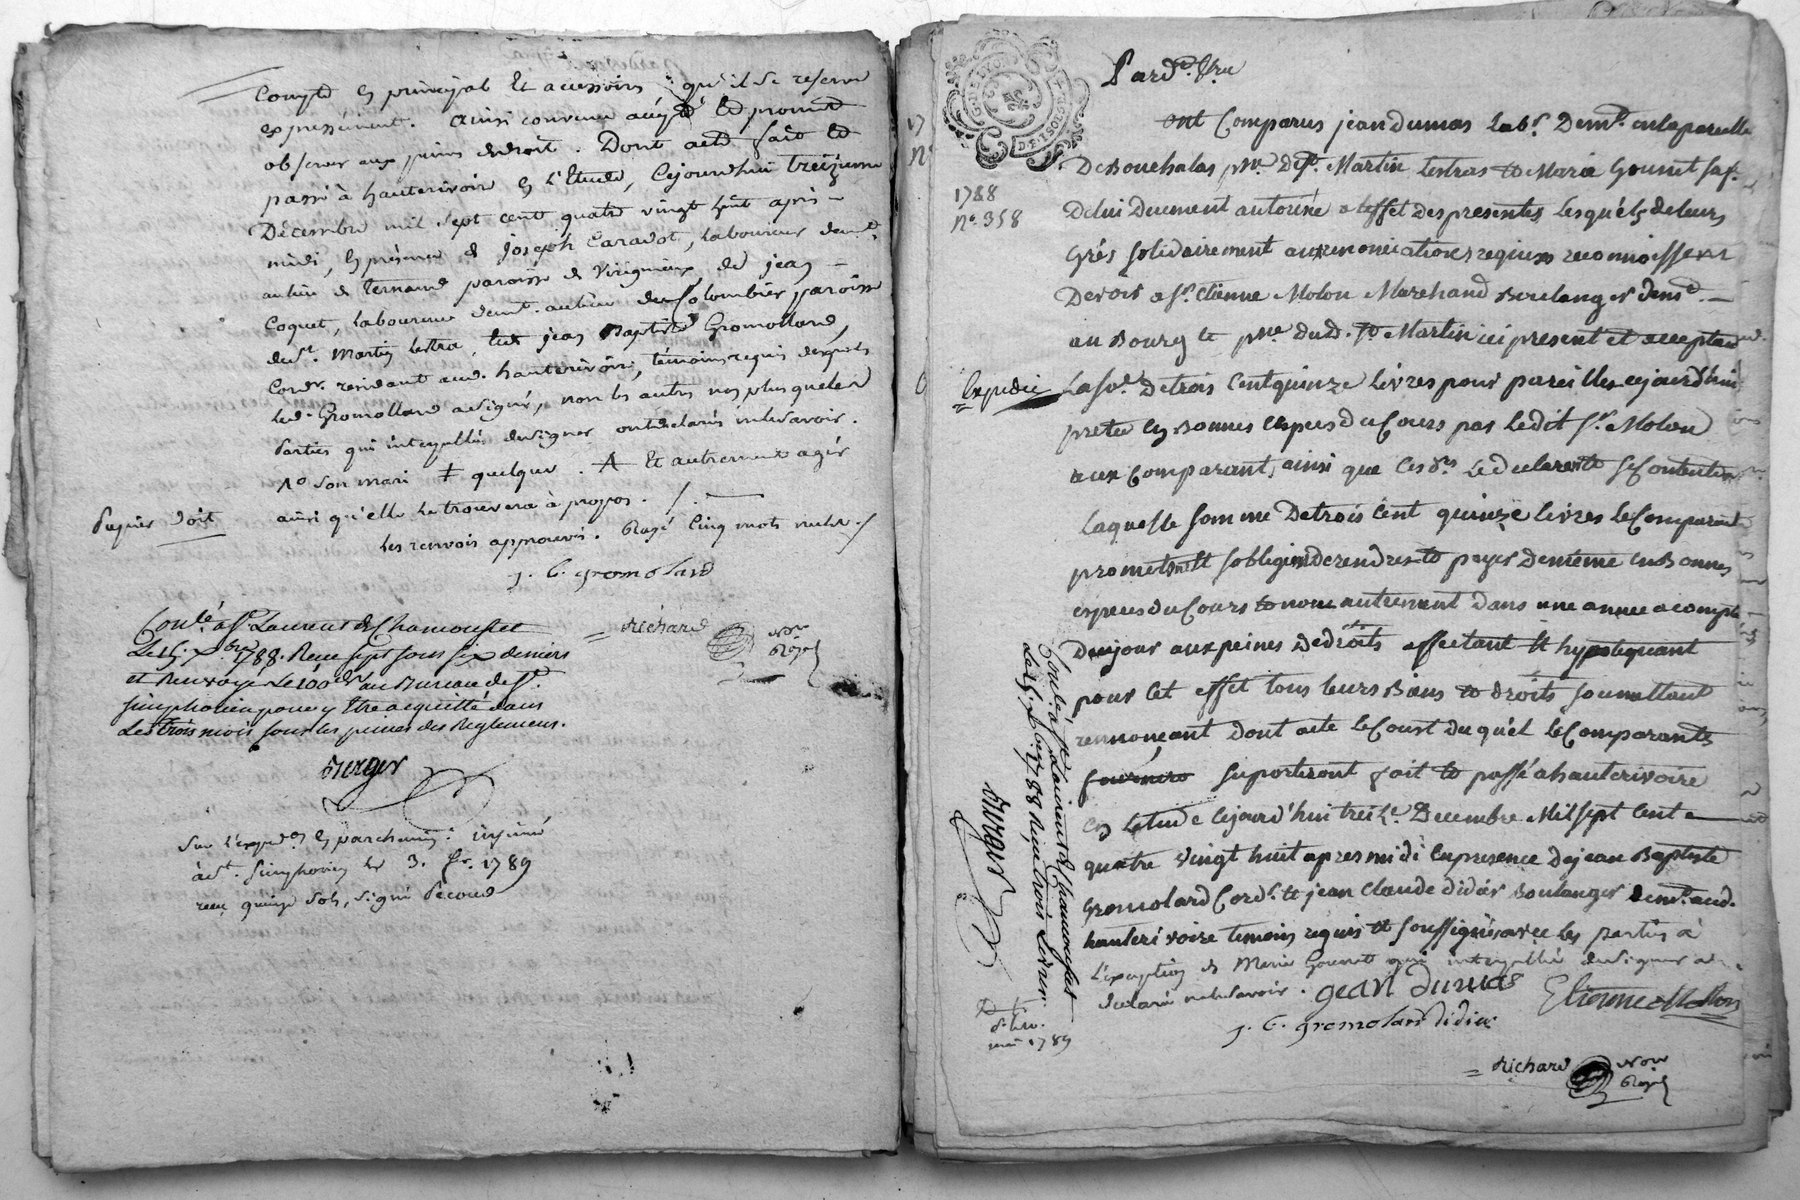 Compte en principal et accessoires, qu'il se reserve
expressément. Ainsi convenu accepté et promis
observer aux peines de droit. Dont acte fait et
passé à hauterivoire en l'Etude, cejourdhui treizieme
Décembre mil sept cent quatre vingt huit après-
midi, en présence de Joseph Caradot, laboureur demt.
au lieu de ternand paroisse de Virigneux et de jean
Coquet, laboureur demt. au lieu du Colombier paroisse
de st. Martin lestra, et jean Baptiste Gromollard,
Cordr. résidant aud. hauterivoire, témoins requis desquels
led. Gromollard a signé, non les autres non plus que les
Parties qui interpellés de signer ont déclaré ne le savoir.
son mari ‡ quelque . A et autrement agir
ainsi qu'elle le trouvera à propos.
les renvois approuvés. Rayé Cinq mots nuls
Papier doit
j. b. gromolard
= Richard Nore Royal
Conlé a st. Laurent de Chamousset
Le 15. Xbre 1788. Reçu sept sous six deniers
et Renvoyé Le 100e dr au Bureau de st.
simphorien pour y Etre acquitté dans
Les trois mois sous les peines des Reglemens.
Berger
Sur l'expedon en parchemin: insinué
à st. simphorien le 3. fr. 1789
reçu quinze sols, signé Pecoud
GEN. DE LYON
1788
No. 358
Pardt. Nre
ont Comparus jean dumas Labr. Demt. en la parcelle
De Bouchalas psse. de st. Martin Lestras et Marie Gounet sa fe.
De lui Duement autorisé a l'effet des presentes Lesquéls de leurs
Grés solidairement aux renonciations requises reconnoissent
Devoir a sr. Etienne Molon Marchand Boulanger demt.
au Bourg et psse. dud. st. Martin ici present et acceptant
Expedié
La some. De trois Cent quinze Livres pour pareille cejourd'hui
preter en Bonnes Especes du Cours par Ledit sr. Molon
aux Comparant, ainsi que
Laquelle somme De trois Cent quinze Livres Le Comparant
promettent et s'obligent de rendre et payer De même en Bonnes
especes du Cours et non autrement dans une année a compter
De ce jour aux peines De droits affectant et hypotequant
pour Cet effet tous leurs Biens et droits soumettant
rennonçant Dont acte Le Coust duquél Le Comparants
suporteront fait et passé a hauterivoire
en Letude Cejourd'hui treize. Decembre Mil sept Cent
quatre vingt huit apres midi En presence De jean Baptiste
Gromolard Cordr. et jean Claude didier Boulanger demt. aud.
hauterivoire temoins requis et soussignés avec les parties à
L'exception de Marie Gounet qui interpellée de signer a
declaré ne le savoir. jean dumas Etienne Molon
j. b. gromolard didier
= Richard Nore Royal
Conlé a st. Laurent de Chamousset
Le 15. Xbre 1788 Reçu trois Livres
Berger
mai 1789